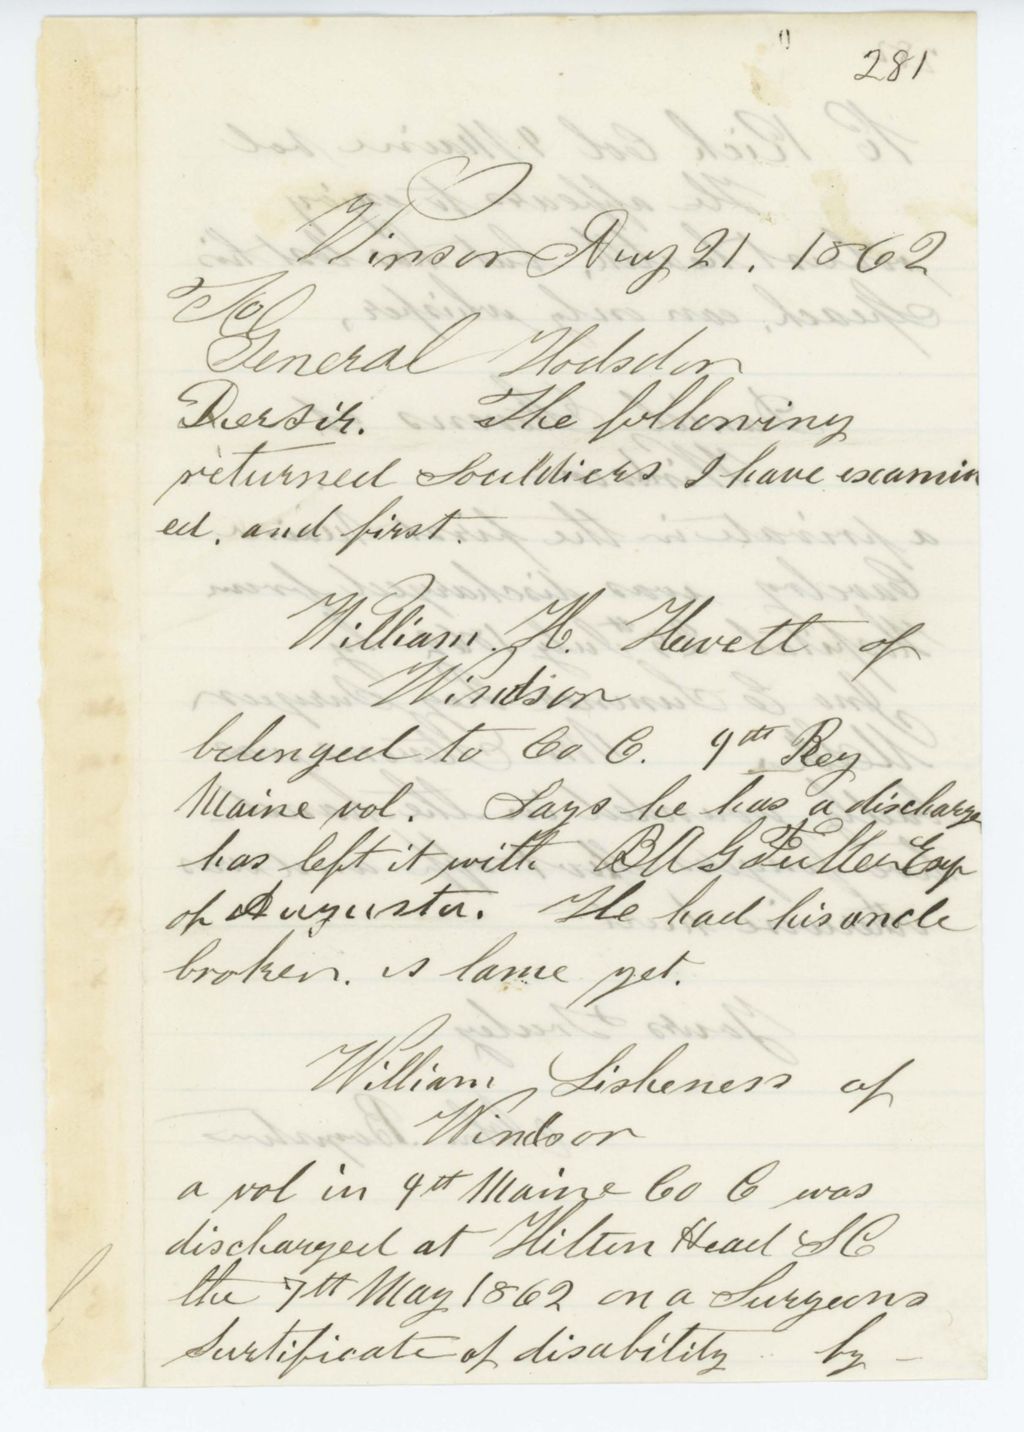 281
Winsor Aug 21. 1862
To
General Hodsdon
Dersir. The following
returned Souldiers I have examin
ed. and first.
William. H. Hewett of
Windsor
belonged to Co C. 9th Reg
Maine vol. Says he has a discharge
has left it with B A G Fuller Esqr
of Augusta. He had his ancle
broken. is lame yet.
William Liskeness of
Windsor
a vol in 9th Maine Co C was
discharged at Hilton Head S C
the 7th May 1862 on a Surgeons
Surtificate of disability by -